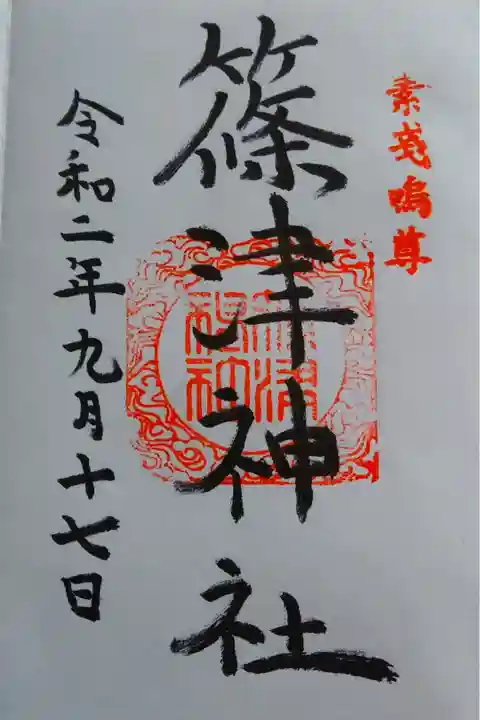 素戔嗚尊
篠津神社
篠津神社
令和二年九月十七日